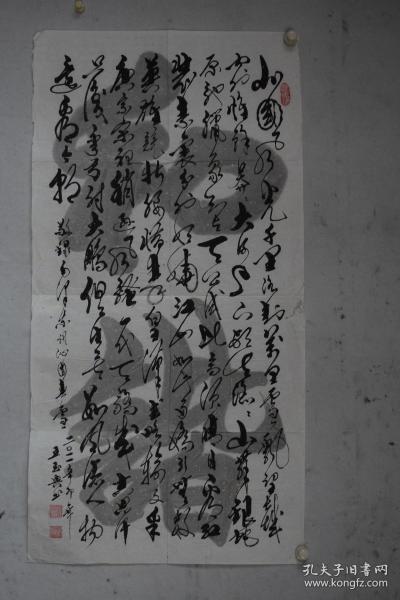 北國風光千里冰封萬里雪飄望長城
內外惟餘莽莽大河上下頓失滔滔山舞銀蛇
原馳蠟象欲与天公試比高須晴日看紅
裝素裹分外妖嬈江山如此多嬌引無數
英雄競折腰惜秦皇漢武略輸文采
唐宗宋祖稍遜風騷一代天驕成吉思汗
只識彎弓射大鵰俱往矣數風流人物
還看今朝
敬錄毛澤東詞沁園春雪
二〇一一年
孔夫子旧书网
www.kongfz.com